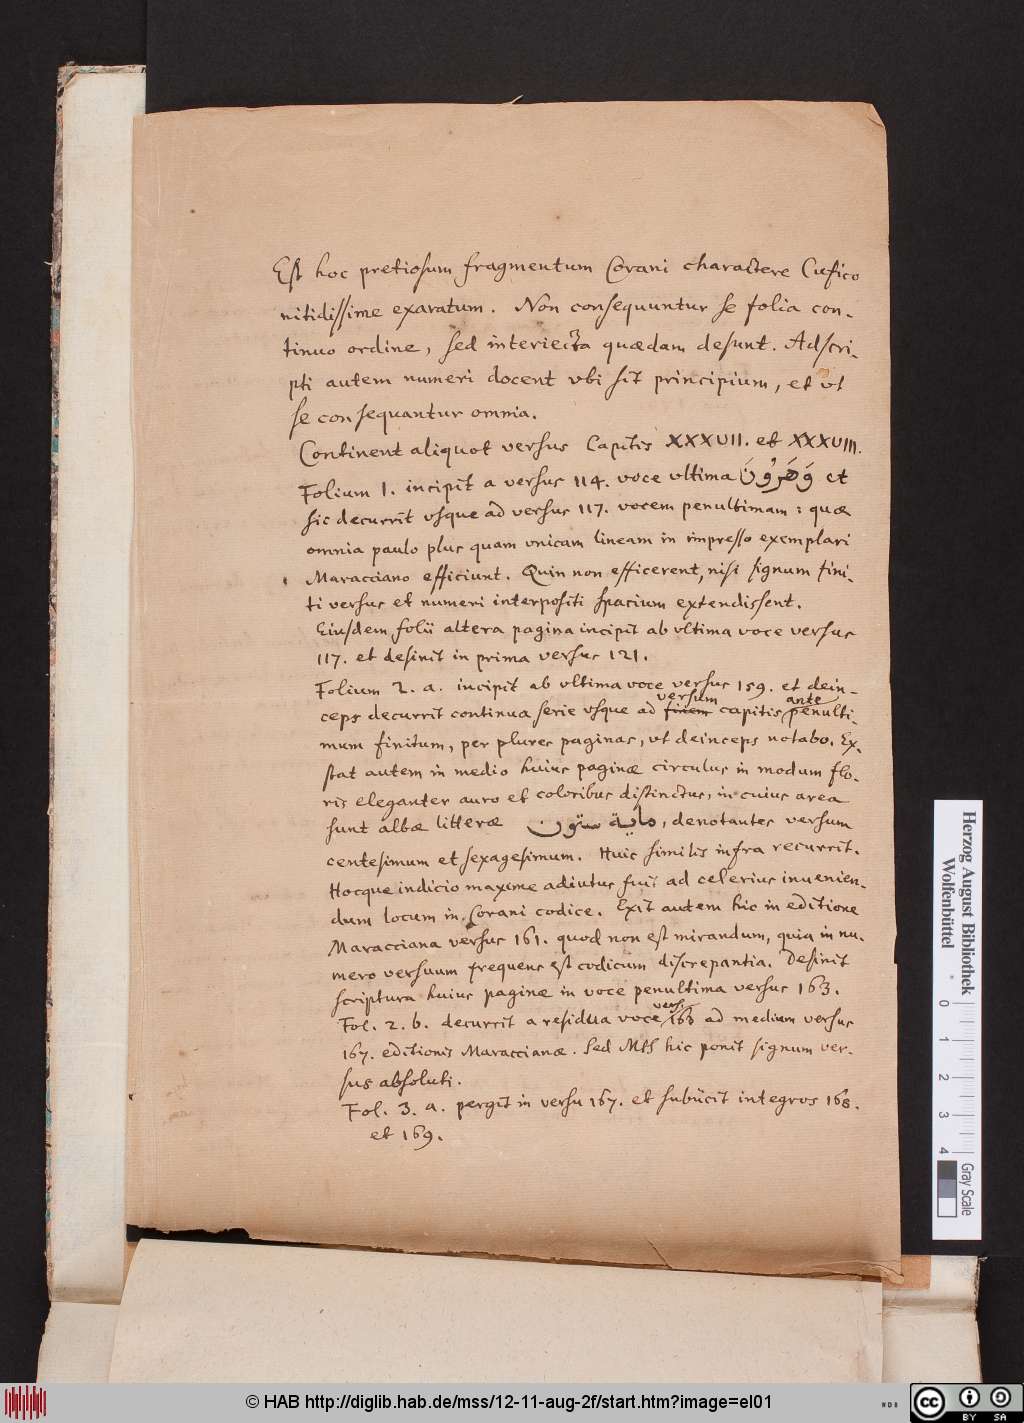 Est hoc pretiosum fragmentum Corani charactere Cufico
nitidissime exaratum. Non consequuntur se folia con-
tinuo ordine, sed interiecta quædam desunt. Adscri-
pti autem numeri docent vbi sit principium, et vt
se consequantur omnia.
Continent aliquot versus Capitis XXXVII. et XXXVIII.
Folium 1. incipit a versus 114. voce vltima وَهَٰرُونَ et
sic decurrit vsque ad versus 117. vocem penultimam: quæ
omnia paulo plus quam vnicam lineam in impresso exemplari
Maracciano efficiunt. Quin non efficerent, nisi signum fini-
ti versus et numeri interpositi spacium extendissent.
Eiusdem folii altera pagina incipit ab vltima voce versus
117. et desinit in prima versus 121.
Folium 2. a. incipit ab vltima voce versus 159. et dein-
versum ante
ceps decurrit continua serie vsque ad finem capitis penulti-
mum finitum, per plures paginas, vt deinceps notabo. Ex-
stat autem in medio huius paginæ circulus in modum flo-
ris eleganter auro et coloribus distinctus, in cuius area
sunt albæ litteræ ماية ستون, denotantes versum
centesimum et sexagesimum. Huic similis infra recurrit.
Hocque indicio maxime adiutus fui ad celerius inuenien-
dum locum in Corani codice. Exit autem hic in editione
Maracciana versus 161. quod non est mirandum, quia in nu-
mero versuum frequens est codicum discrepantia. Desinit
scriptura huius paginæ in voce penultima versus 163.
vers.
Fol. 2. b. decurrit a residua voce 163 ad medium versus
167. editionis Maraccianæ. Sed MtS hic ponit signum ver-
sus absoluti.
Fol. 3. a. pergit in versu 167. et subiicit integros 168.
et 169.
Herzog August Bibliothek
Wolfenbüttel
0 1 2 3 4
Gray Scale
© HAB http://diglib.hab.de/mss/12-11-aug-2f/start.htm?image=el01
cc BY SA